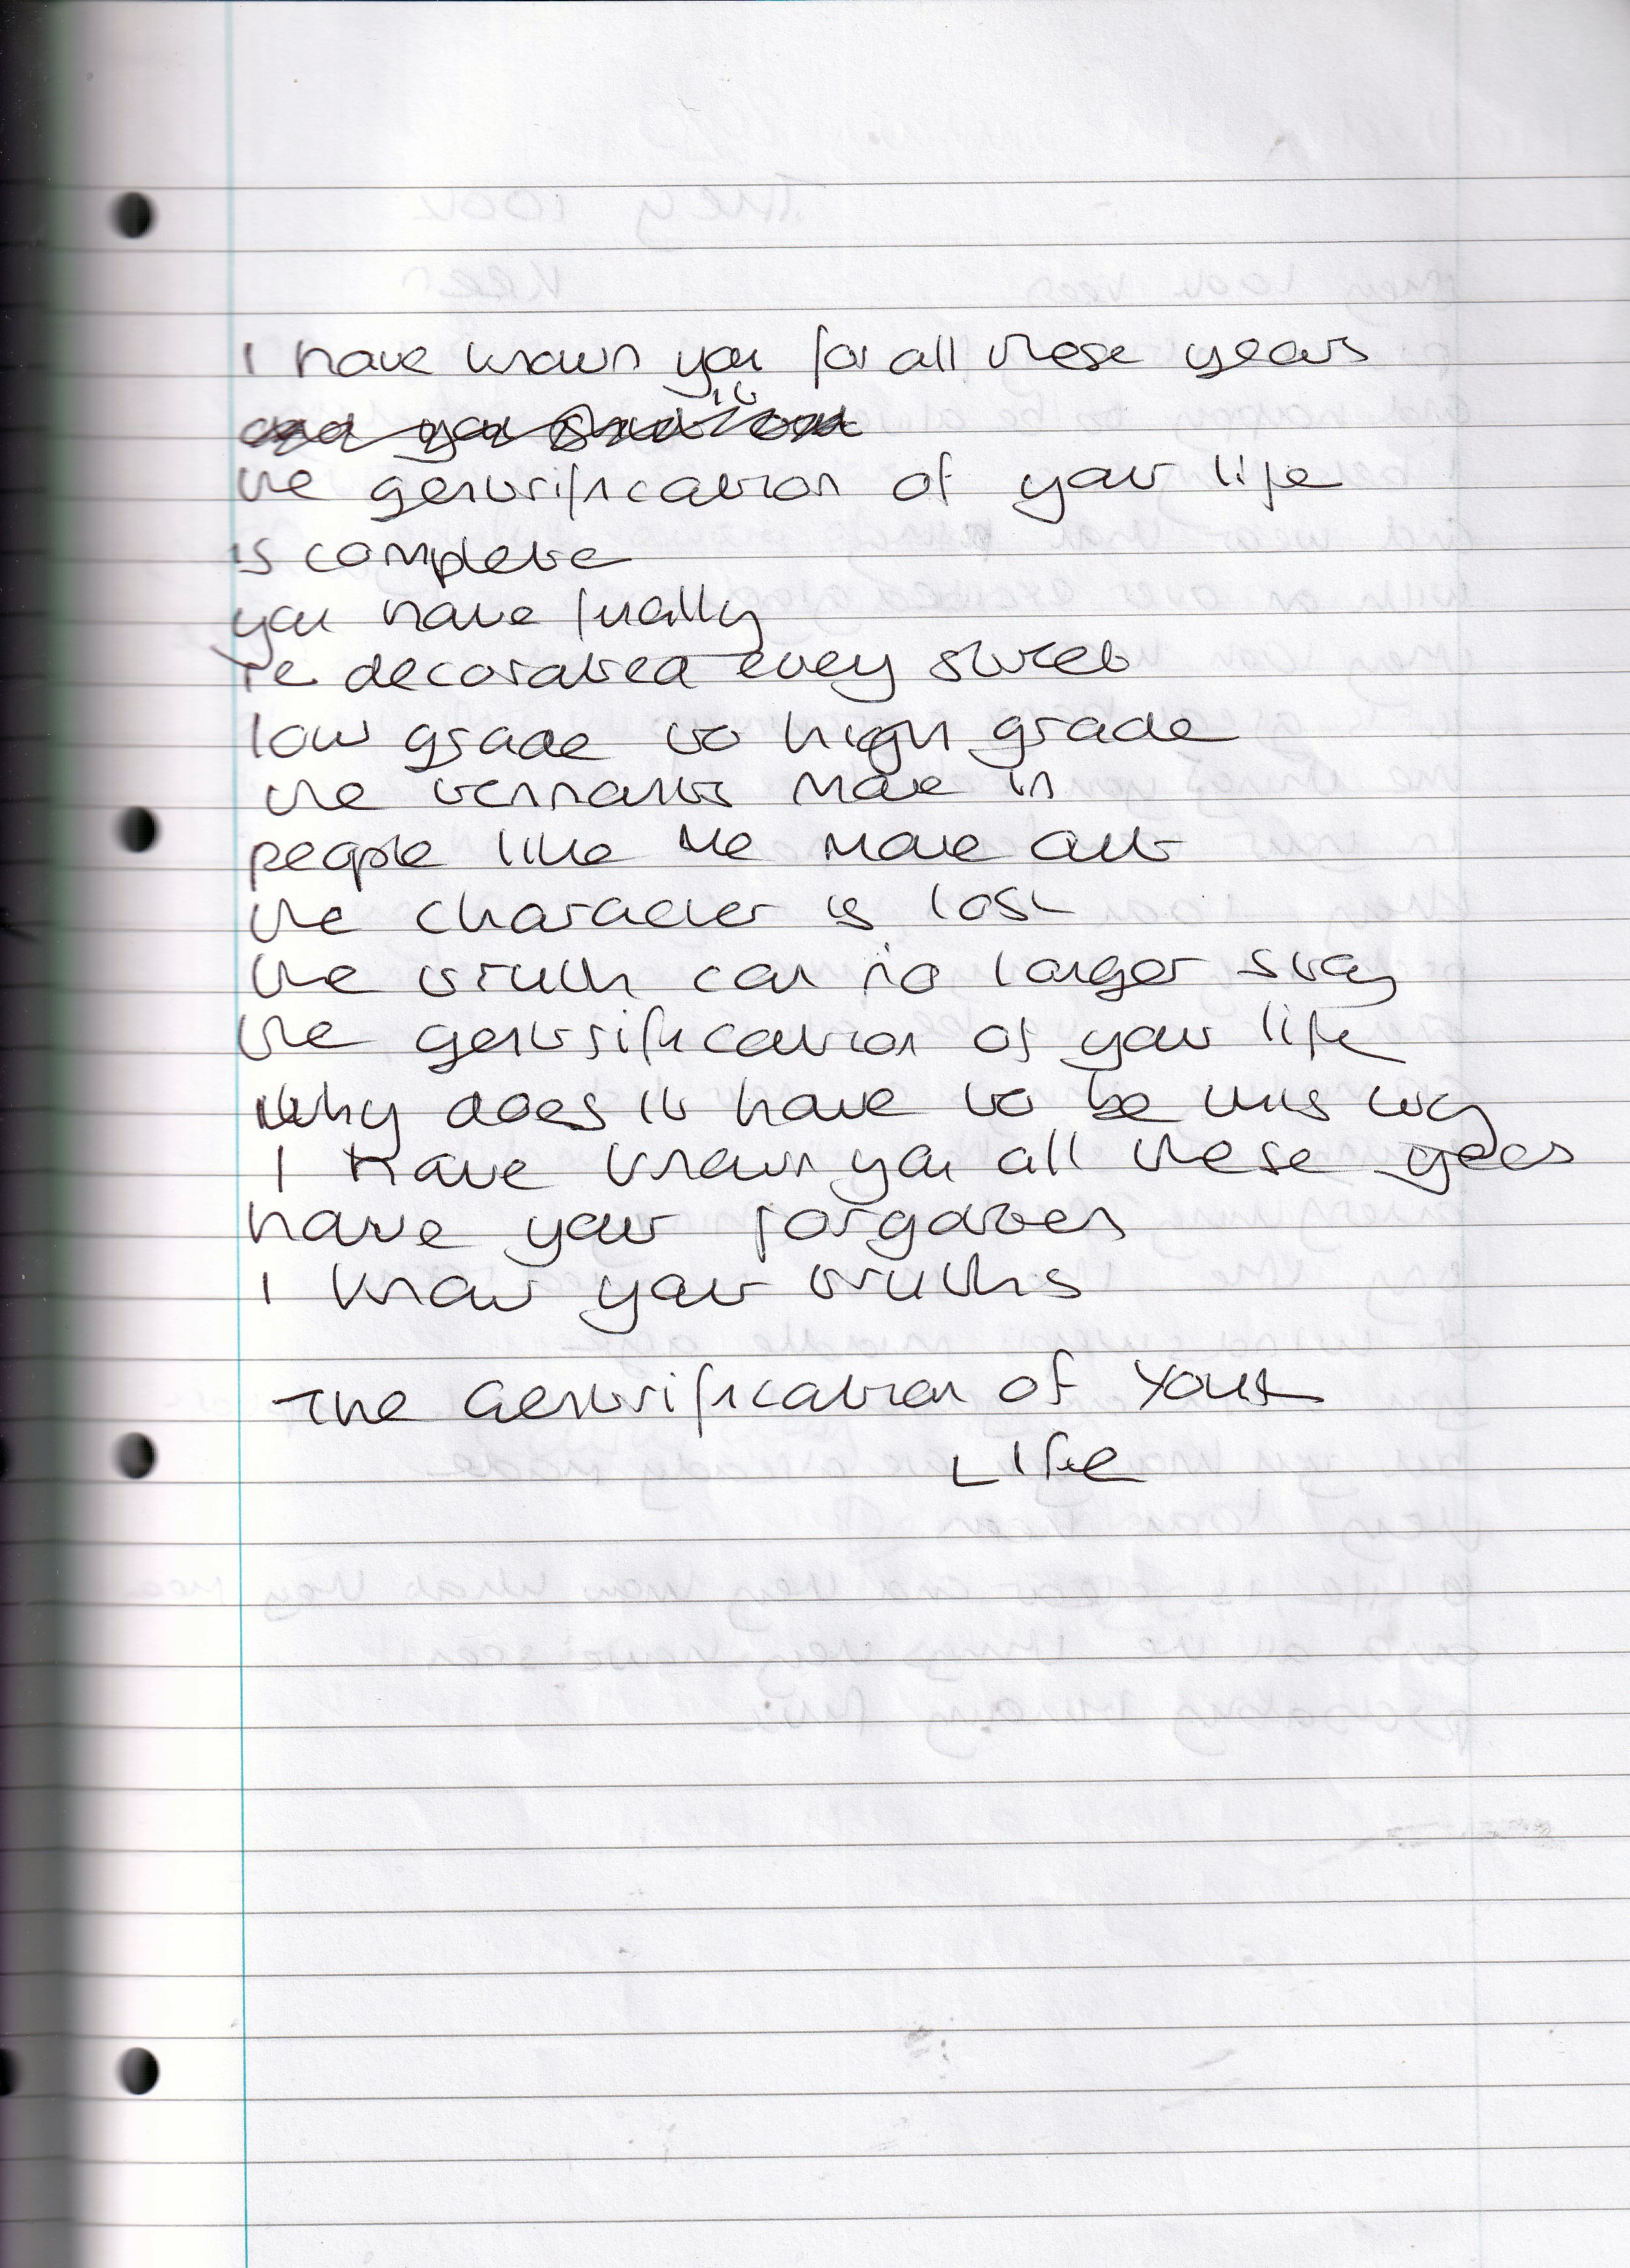 I have known you for all these years
the gentrification of your life
is complete
you have finally
re decorated every street
low grade to high grade
the tennants move in
people like me move out
the character is lost
the truth can no longer stay
the gentrification of your life
Why does it have to be this way
I have known you all these years
have your forgotten
I know your truths
The Gentrification of Your
Life